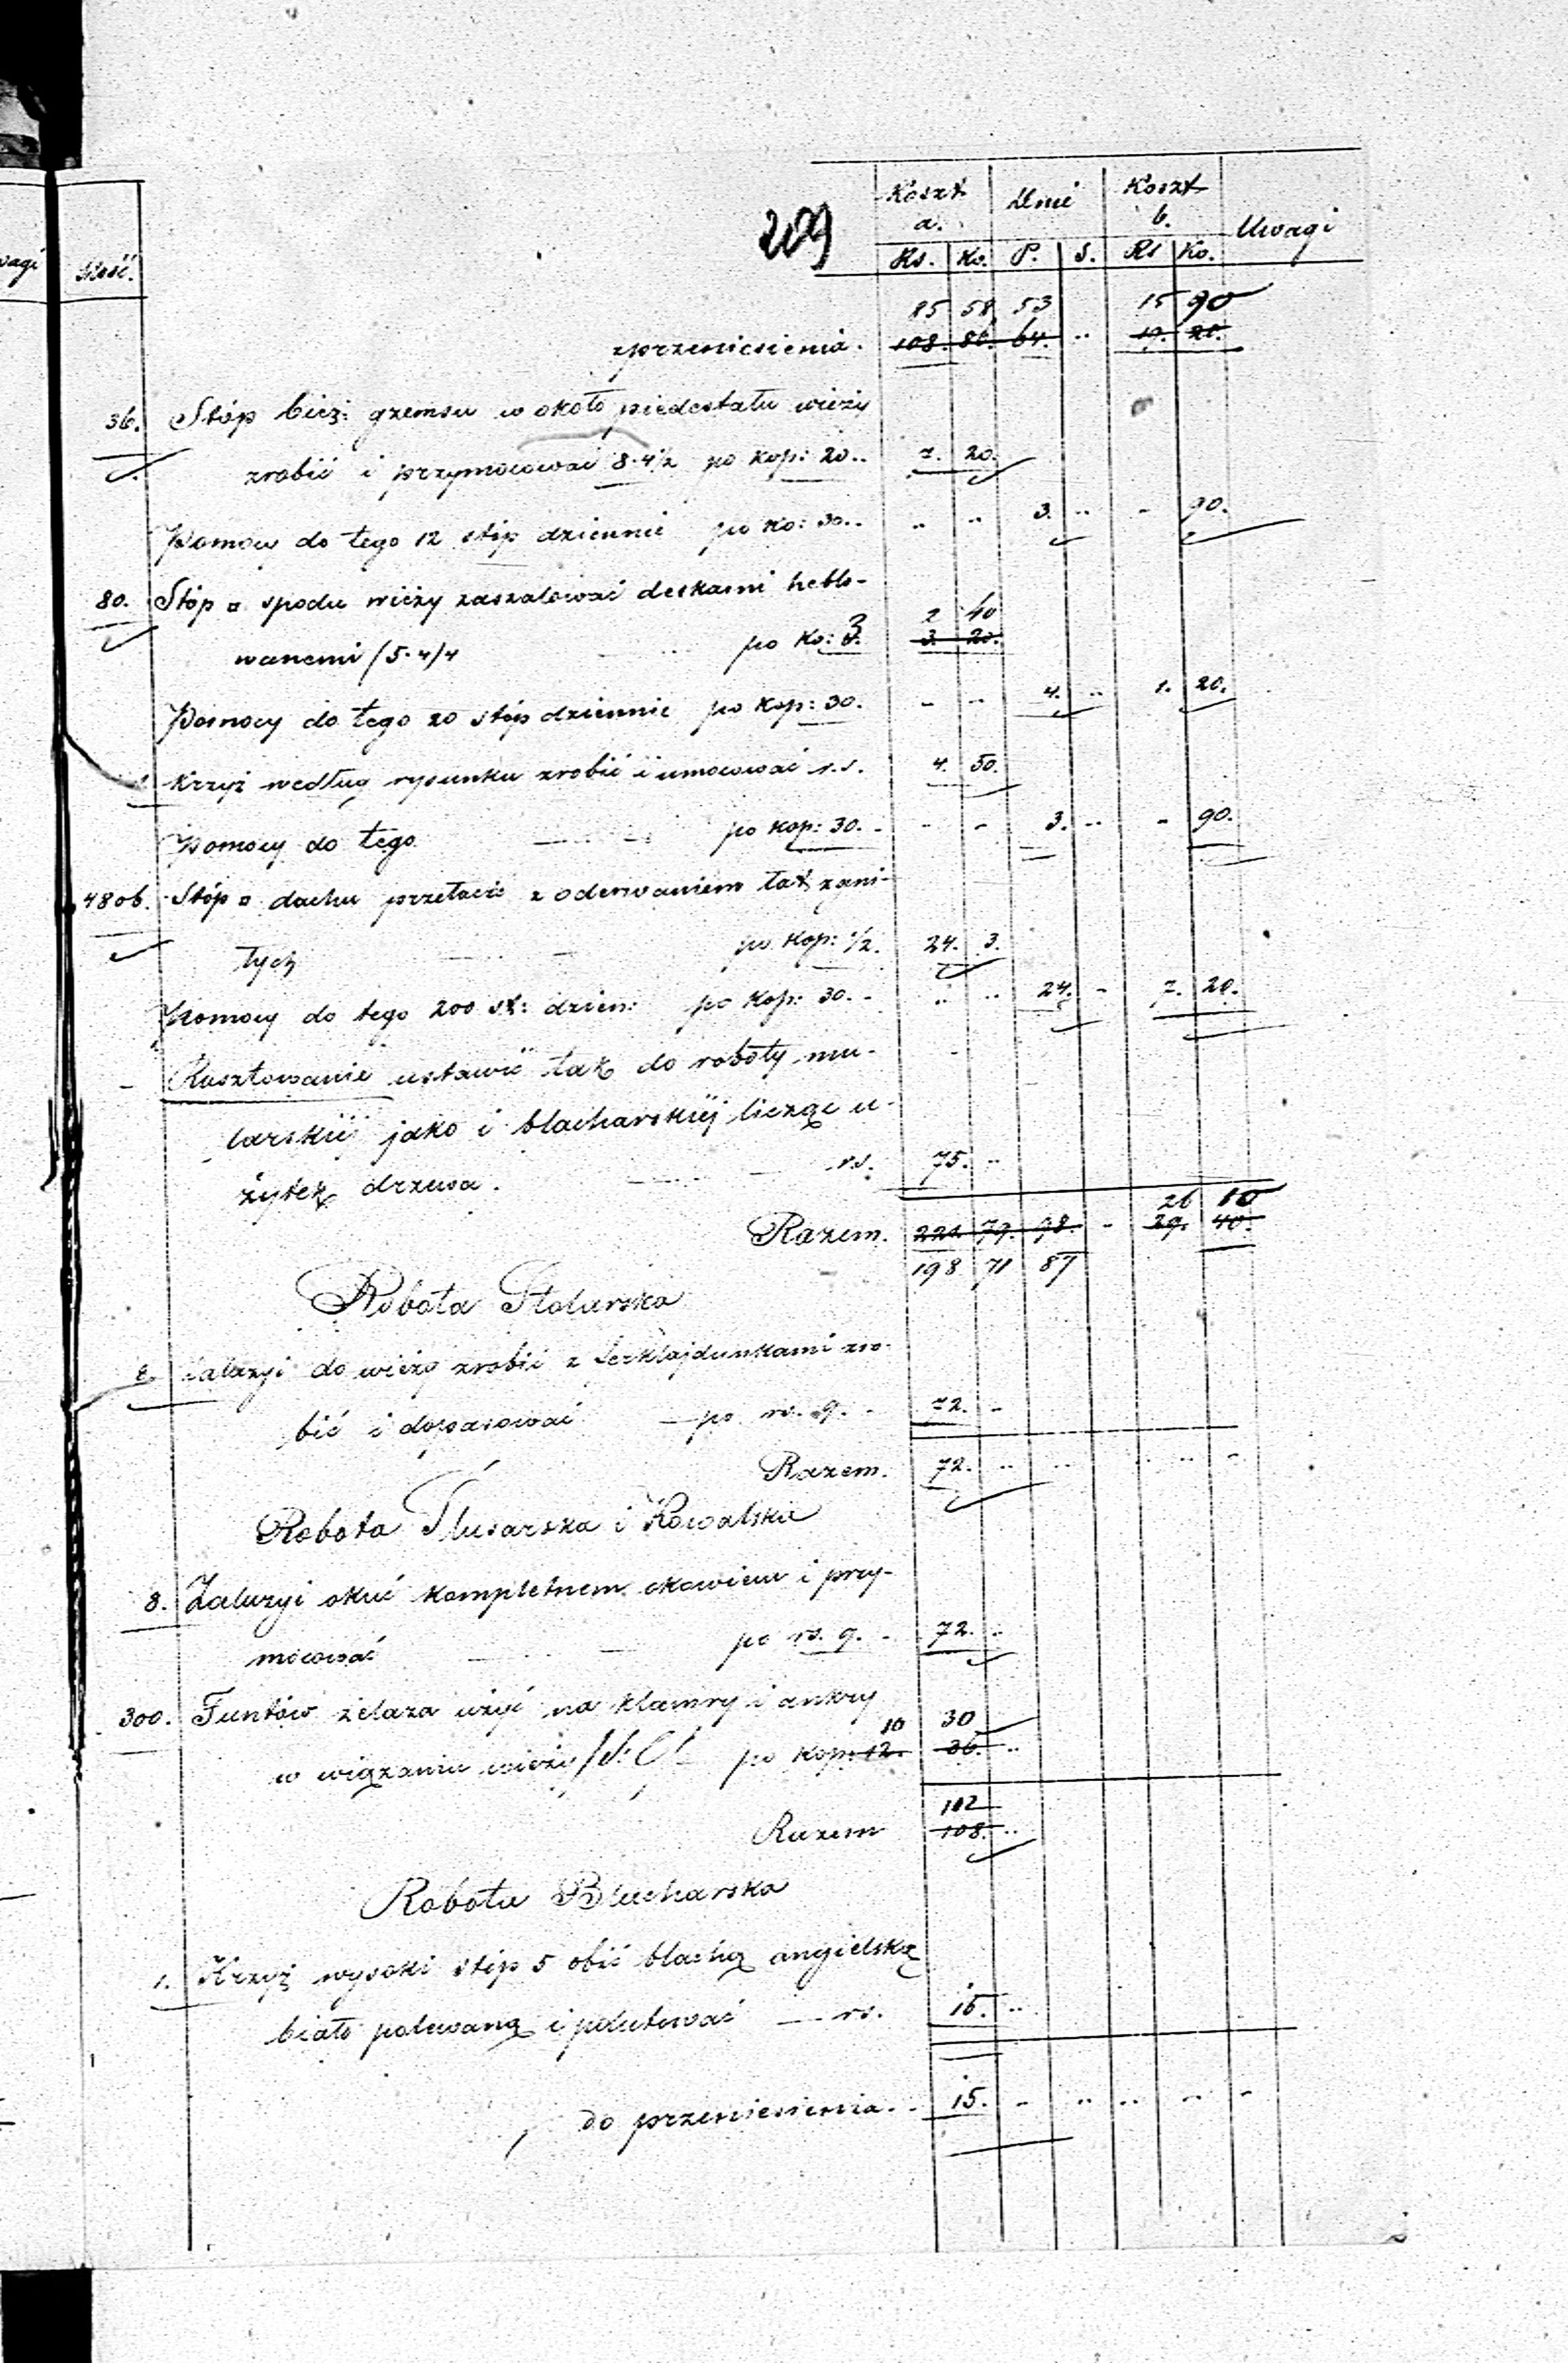 209
Koszt a. Dnie Koszt b. Uwagi
Ilość. Rs. Ko. P. S. Rs Ko.
85 58 53 15 90
zprzeniesienia. 108. 86. 64. .. 19. 20.
36. Stóp bież: gzemsu w około piedestału wieży
zrobić i przymocować 8.4/2 po kop: 20.. 7. 20.
Pomocy do tego 12 stóp dziennie po ko: 30.. .. .. 3. .. - 90.
80. Stóp □ spodu wieży zaszalować deskami heblo-
2 40
wanemi /5.4/4 po ko: 3 3. 20.
Pomocy do tego 20 stóp dziennie po kop: 30. - .. 4. .. 1. 20.
1. Krzyż według rysunku zrobić i umocować r.s. 4. 50.
Pomocy do tego po kop: 30. - - - 3. .. - 90.
4806. Stóp □ dachu przełacić z oderwaniem łat zgni-
łych po kop: 1/2. 24. 3.
Pomocy do tego 200 st: dzien: po kop: 30. - .. .. 24. - 7. 20.
- Rusztowanie ustawić tak do roboty mu-
larskiéj jako i blacharskiéj licząc u-
żytek drzewa. rs. 75. ..
26 10
Razem. 221. 79. 98. - 29. 40.
198 71 87
Robota Stolarska
8. Żaluzyi do wieży zrobić z ferklajdunkami zro-
bić i dopasować po rs. 9. - 72. -
Razem. 72. .. .. .. .. -
Robota Ślusarska i Kowalska
8. Żaluzyi okuć kompletnem okowiem i przy-
mocować po rs. 9. - 72. ..
300. Funtów żelaza użyć na klamry i ankry
10 30
w wiązaniu wieży po kop: 12. 36. ..
102
Razem 108. ..
Robota Blacharska
1. Krzyż wysoki stóp 5 obić blachą angielską
biało polewaną i polutować rs. 15. ..
do przeniesienia. - 15. - .. .. .. -